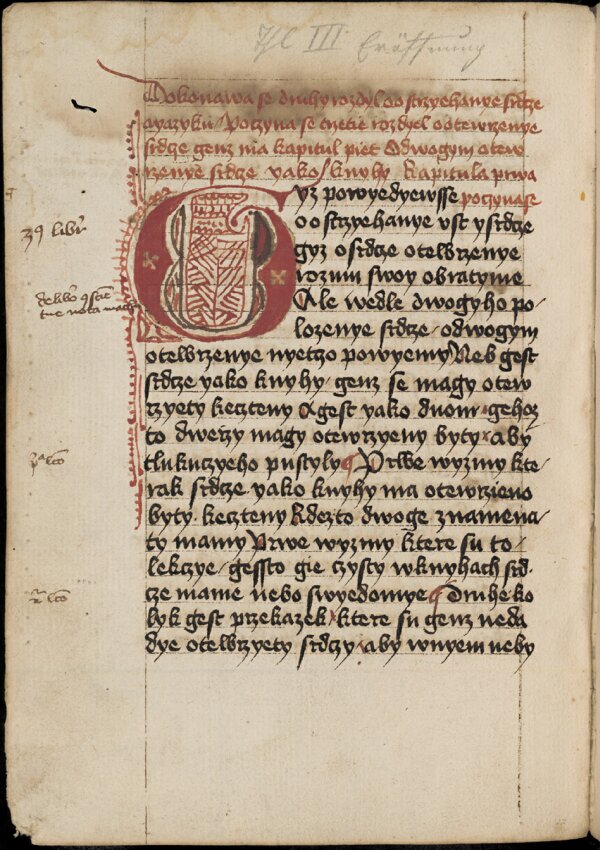 Thl III. Eröffnung
Dokonawa se druhy rozdyel o ostrzyehanye srdze
a yazyku Poczyna se trzetie rozdyel o otewrzenye
srdze genz ma kapitul piet O dwogym otew
rzenye srdze yako knyhy kapitula prwa
yz powyedyewsse poczyna se
o ostrzyehanye ust y srdze
gyz o srdze otewrzenye
rozum swoy obratyme
Ale wedle dwogyho po
lozenye srdze odwogym
otewrzenye nyetzo powyemy Neb gest
srdze yako knyhy genz se magy otew
rzyety keczteny A gest yako duom gehoz
to dwerzy magy otewrzyeny byty aby
tlukuczyeho pustyly Prwe wyzmy kte
rak srdze yako knyhy ma otewrzieno
byty keczteny Kdezto dwoge znamena
ty mamy Prwe wyzmy ktere su to
lekczye gessto gie czysty w knyhach srd
cze mame nebo swyedomye Druhe ko
lyk gest przekazek ktere su genz neda
dye otewrzyety srdczy aby w nyem neby
39 libr